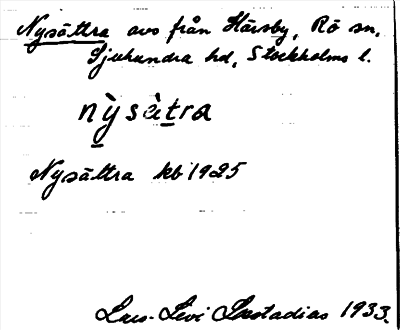 Nysättra avs från Härsby, Rö sn,
Sjuhundra hd, Stockholms l.
nỳsètra
Nysättra kb 1925
Lars-Levi Læstadius 1933.